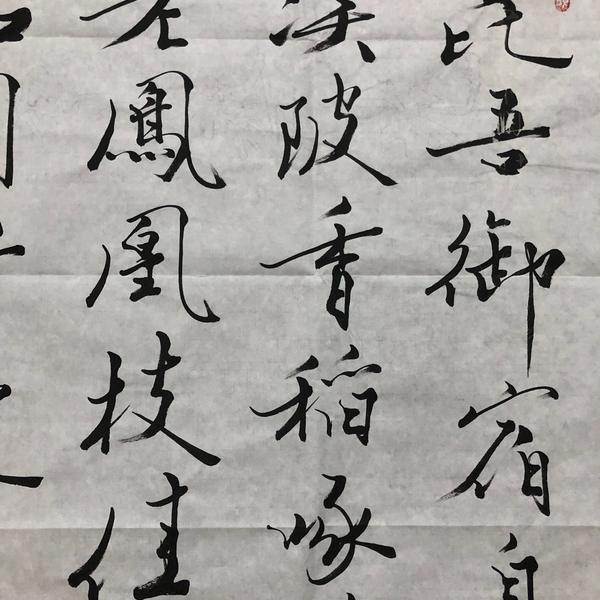 昆吾御宿自
渼陂香稻啄
老鳳凰枝佳